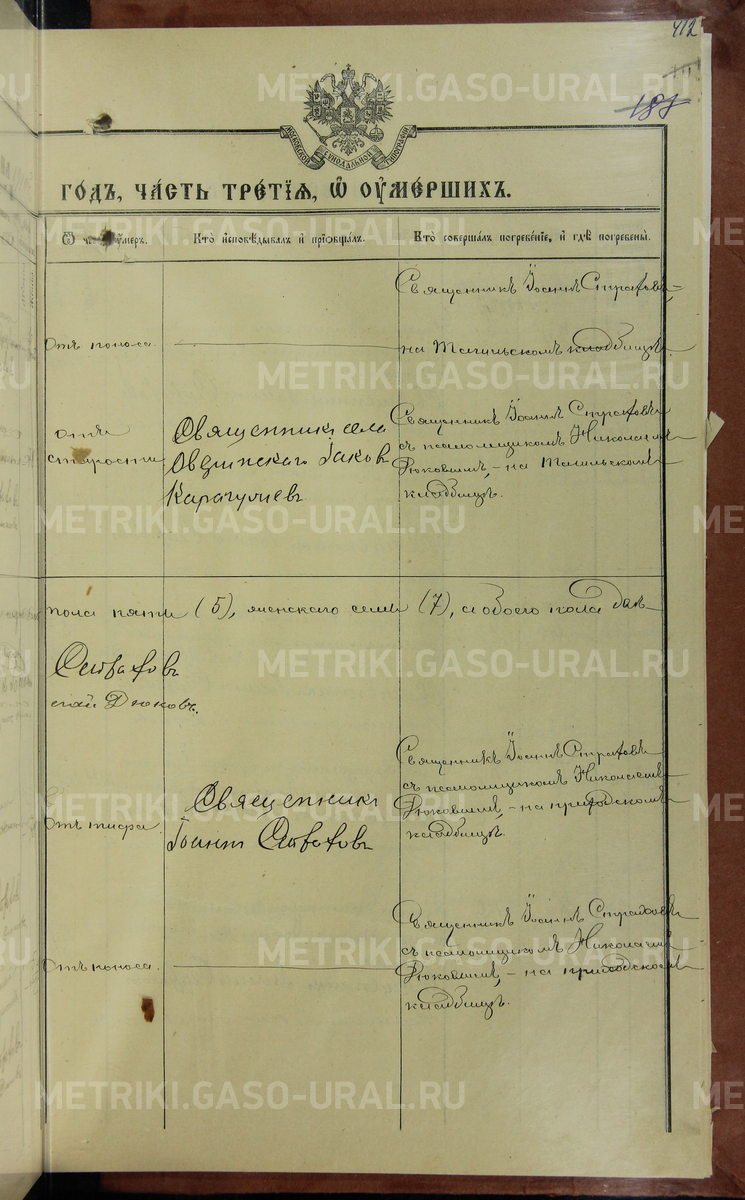 412
187
МОСКОВСКОЙ СѴНОДАЛЬНОЙ ТИПОГРАФІИ
ГОДЪ, ЧАСТЬ ТРЕТІѦ, Ѿ ОУМЕРШИХЪ.
Ѿ чегѡ оумеръ.
Кто исповѣдывалъ и пріѡбщалъ.
Кто совершалъ погребеніе, и гдѣ погребены.
Отъ поноса.
Священникъ Іоаннъ Страховъ, –
на Тагильскомъ кладбищѣ.
отъ
старости
Священникъ села
Іаковъ
Священникъ Іоаннъ Страховъ
съ псаломщикомъ Николаемъ
Дюковымъ, – на Тагильскомъ
кладбищѣ.
пола пять (5), женскаго семь (7), а обоего пола два-
Страховъ
Дюковъ.
Отъ тифа.
Священникъ
Іоаннъ Страховъ
Священникъ Іоаннъ Страховъ
съ псаломщикомъ Николаемъ
Дюковымъ, – на приходскомъ
кладбищѣ.
Отъ поноса.
Священникъ Іоаннъ Страховъ
съ псаломщикомъ Николаемъ
Дюковымъ, – на приходскомъ
кладбищѣ.
METRIKI.GASO-URAL.RU